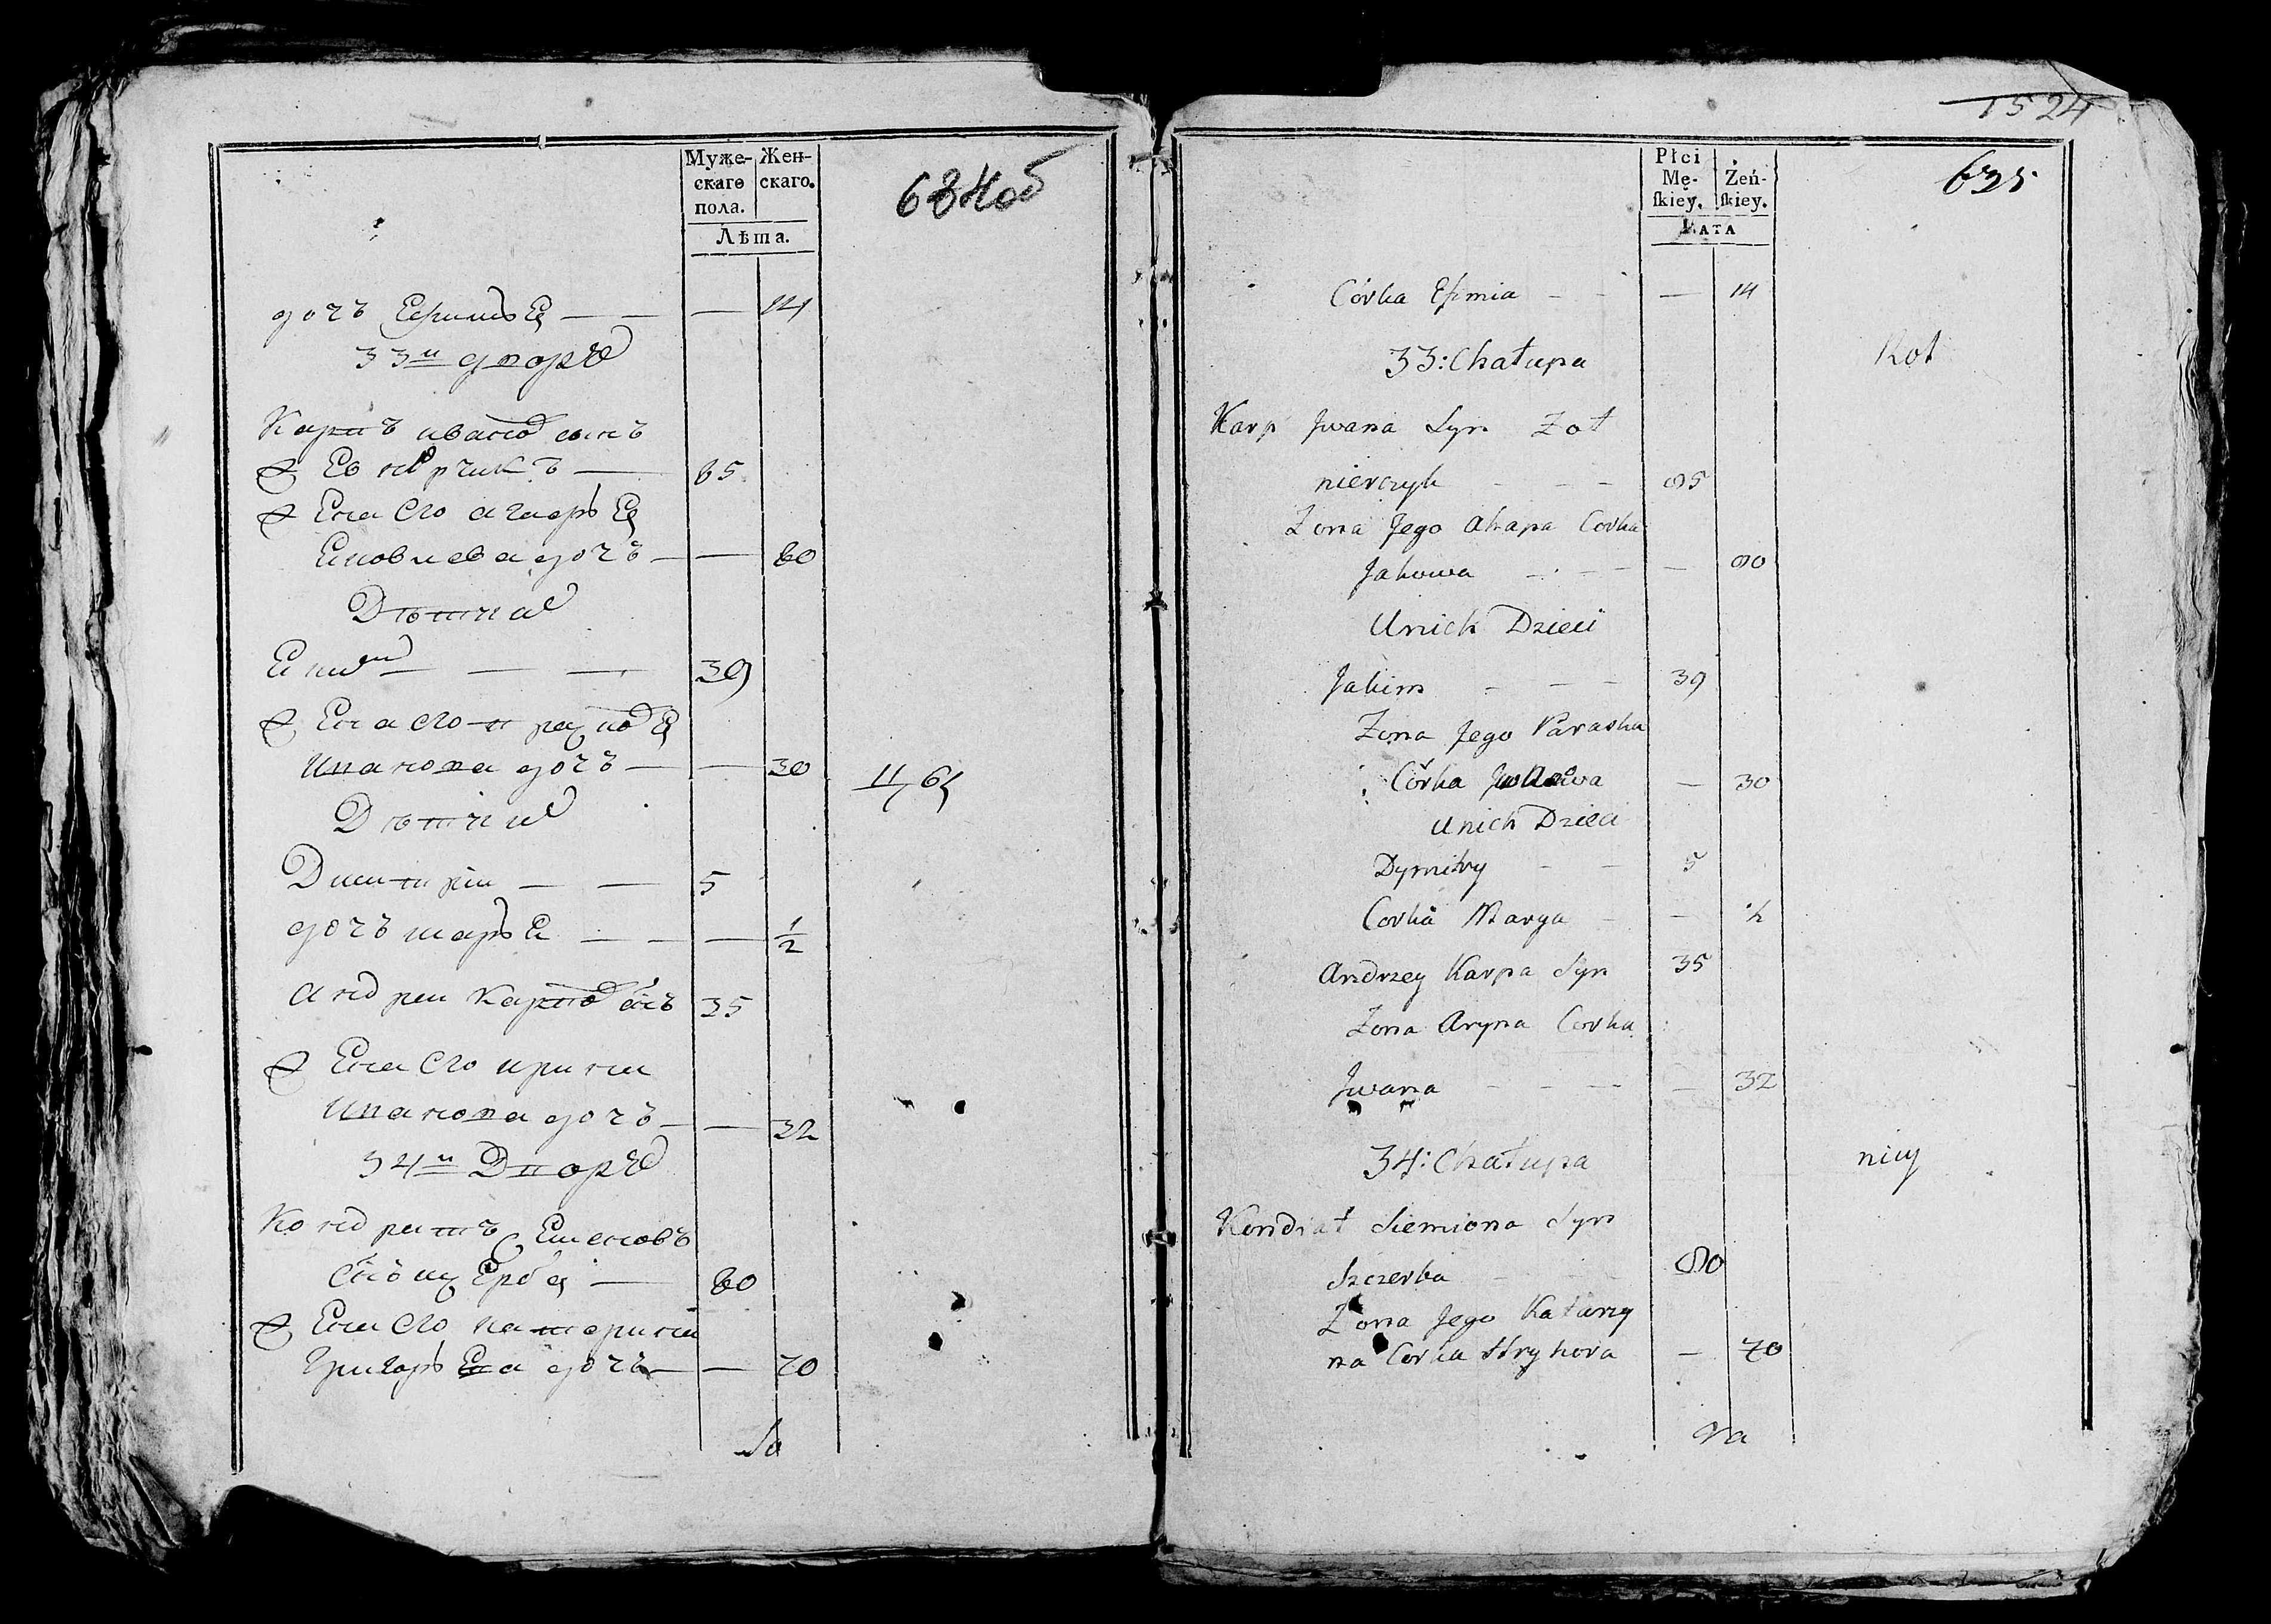 Муже-
скаго
пола.
Жен-
скаго.
Лѣта.
634об
дочь Ефимья — — — 14
33й дворъ
Карпъ Иванов сынъ
— 65
Жена Его Агафья
Яковлева дочь — — 60
Дѣти их
Яким — — 39
Жена Его Парасковья
Иванова дочь — — 30
Дѣти их
Дмитрий — — 5
дочь Марья — — — 1/2
Андрей Карпов сынъ 35
Жена Его Ирина
Иванова дочь — — 32
34й Дворъ
Кондратъ Семеновъ
сынъ Щерба — 80
Жена Его Катерина
Григорьева дочь — — 70
1524
635
Płci
Mę-
ſkiey.
Żeń-
ſkiey.
LATA
Córka Efimia — — — 14
33: Chałupa
Kot
Karp Jwana Syn Żoł
nierczyk — — — 65
Zona Jego Ahapa Corka
Jakowa — — — 60
Unich Dzieci
Jakim — — — 39
Zona Jego Paraska
Córka — 30
Unich Dzieci
Dymitry — — 5
Corka Marya — — ½
Andrzey Karpa Syn 35
Zona Aryna Corka
Jwana — — — — 32
34: Chałupa
nicy
Kondrat Siemiona Syn
Szczerba — 80
Zona Jego Katarzy
na Corka Hryhora — 70